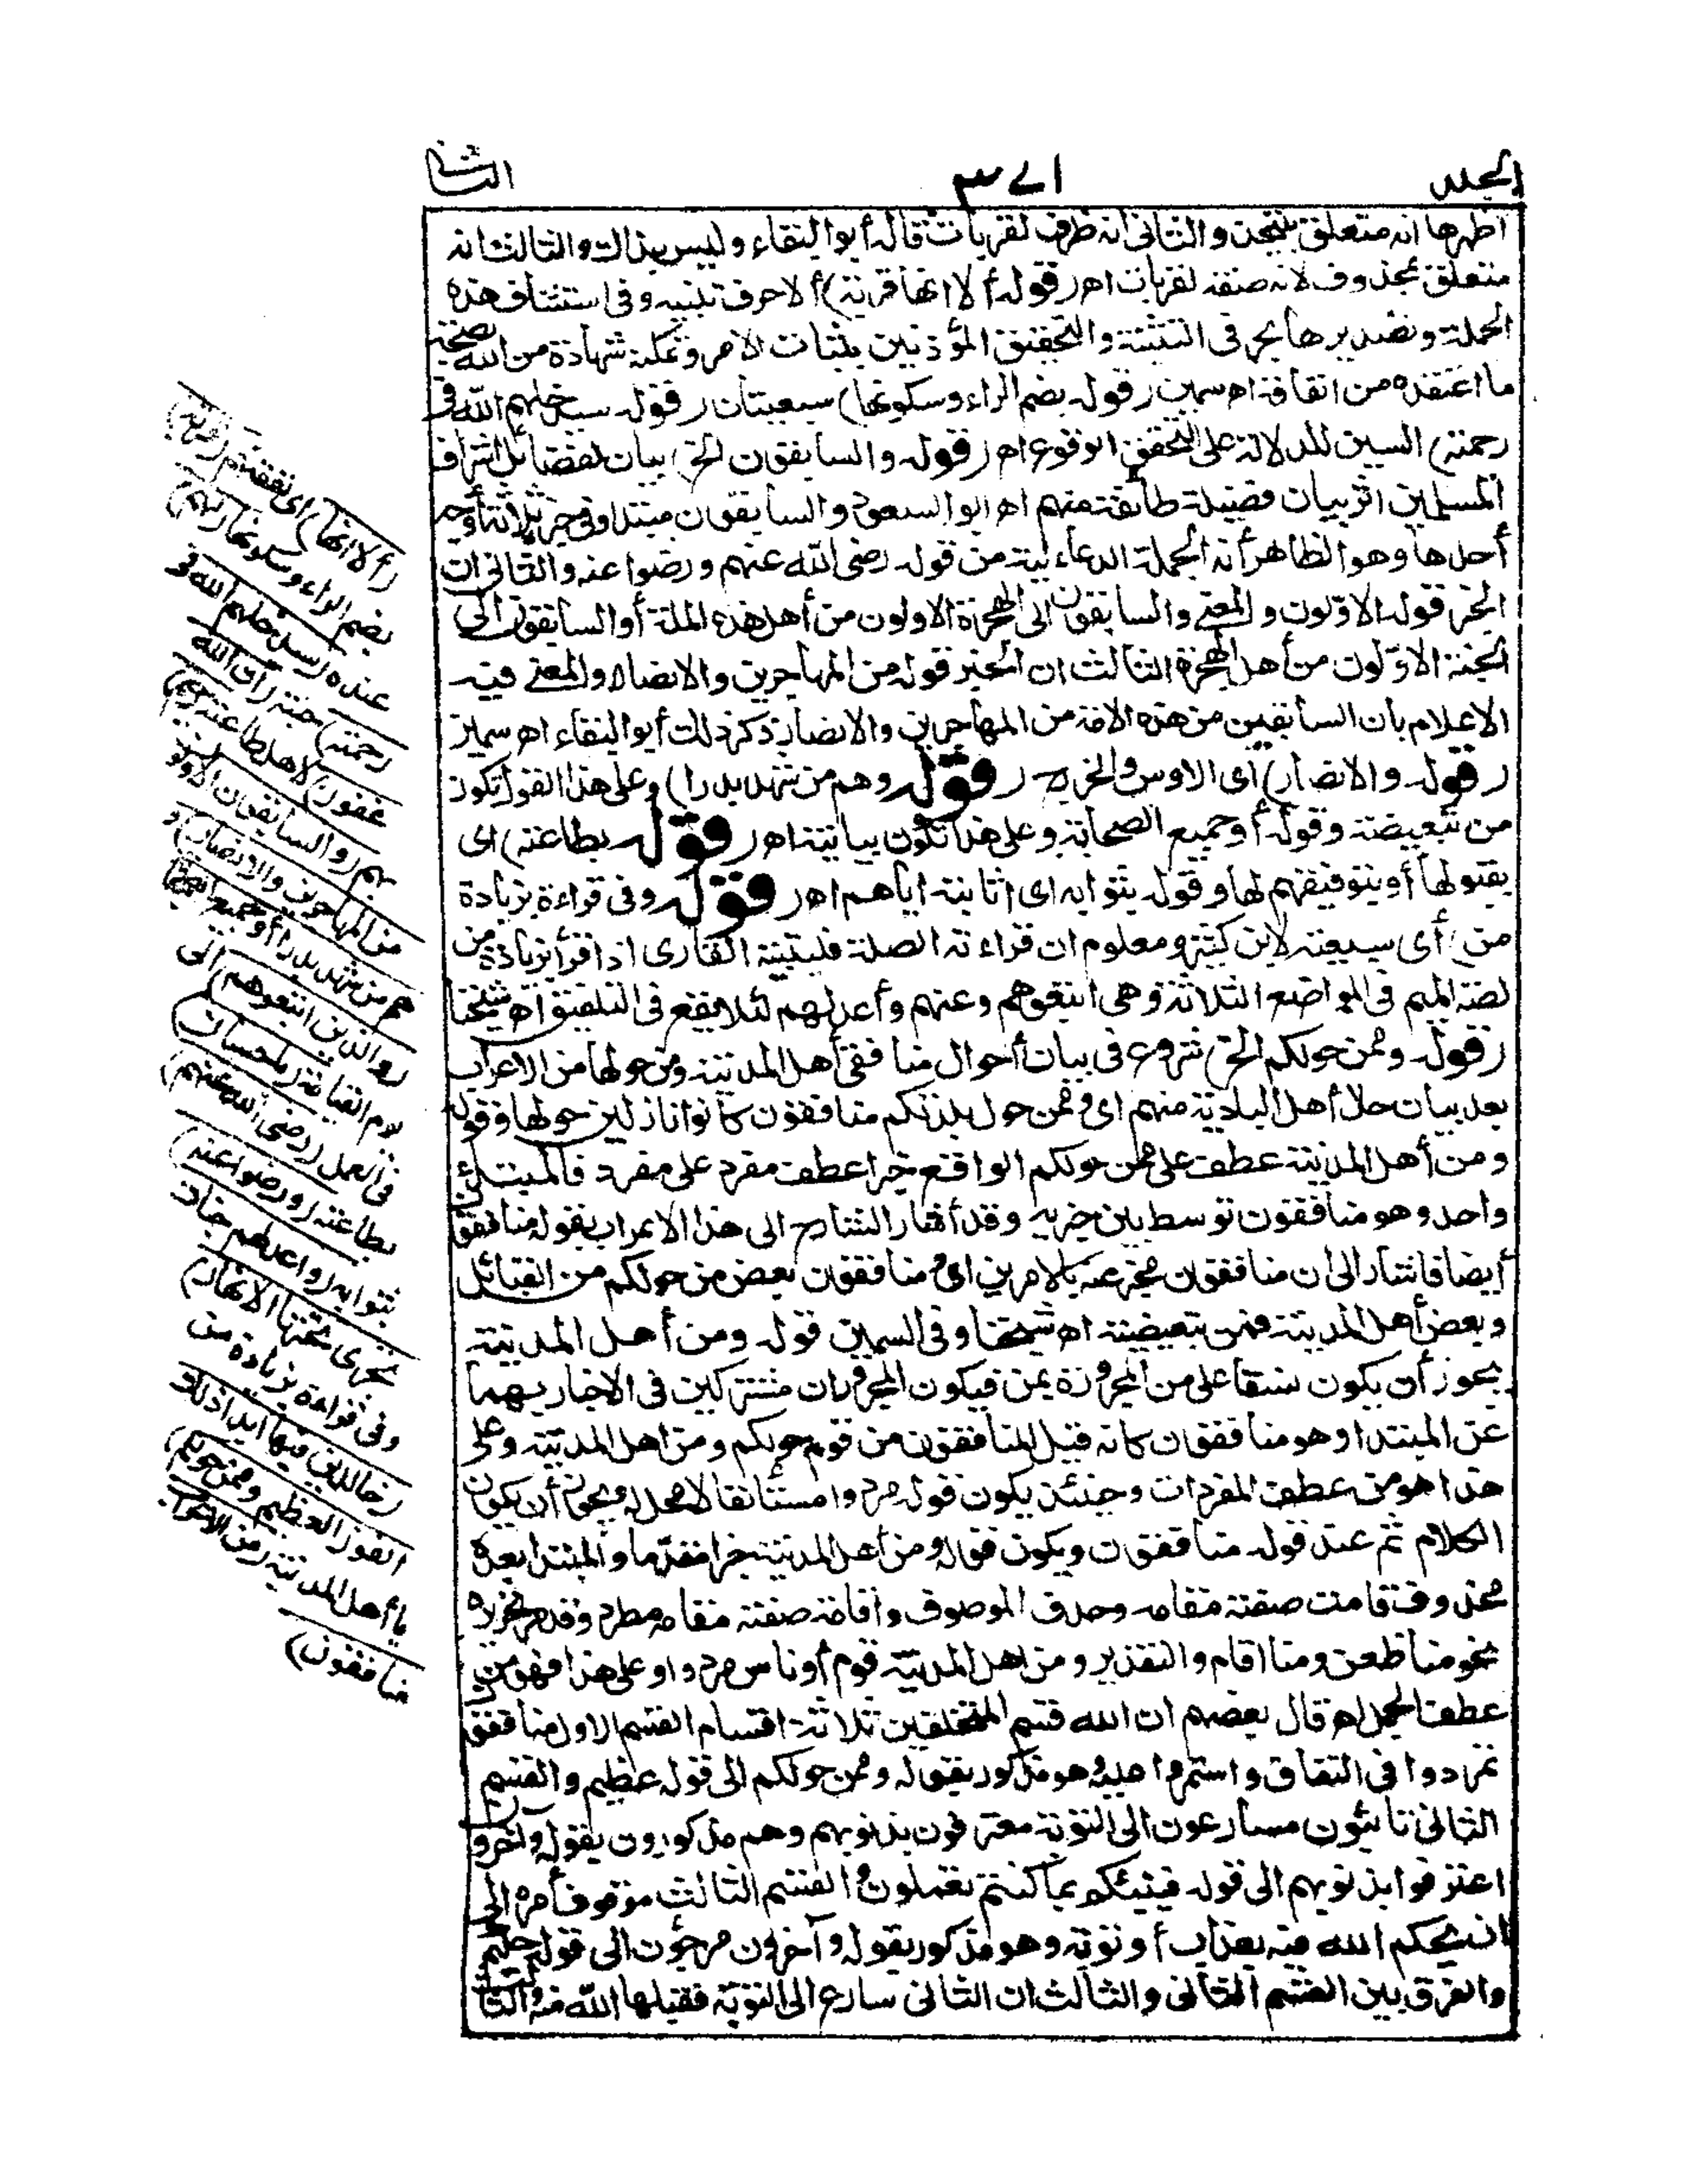 الجلد ٣٧١ الثانى
أظهرها انه متعلق بيتخذ والثانى أنه ظرف لقربات قاله أبو البقاء وليس بذاك والثالث انه
متعلق بمحذوف لانه صفة لقربات اهـ (قوله ألا انها قربة) ألا حرف تنبيه وفى استئناف هذه
الجملة وتصديرها بحرفى التنبيه والتحقيق المؤذنين بثبات الأمر وتمكنه شهادة من الله بصحة
ما اعتقده من انفاقه اهـ سمين (قوله بضم الراء وسكونها) سبعيتان (قوله سيدخلهم الله فى
رحمته) السين للدلالة على تحقق الوقوع اهـ (قوله والسابقون الخ) بيان لفضائل أشراف
المسلمين اثر بيان فضيلة طائفة منهم اهـ أبو السعود والسابقون مبتدأ وفى خبره ثلاثة أوجه
أحدها وهو الظاهر أنه الجملة الدعاءية من قوله رضى الله عنهم ورضوا عنه والثانى ان
الخبر قوله الاوّلون والمعنى والسابقون الى الهجرة الاولون من أهل هذه الملة أو السابقون الى
الجنة الاوّلون من أهل الهجرة الثالث ان الخبر قوله من المهاجرين والانصار والمعنى فيه
الاعلام بأن السابقين من هذه الامة من المهاجرين والانصار ذكر ذلك أبو البقاء اهـ سمين
(قوله والانصار) أى الاوس والخزرج (قوله وهم من شهد بدرا) وعلى هذا القول تكون
من تبعيضية وقوله أو جميع الصحابة وعلى هذا تكون بيانية اهـ (قوله بطاعته) اى
بقبولها أو بتوفيقهم لها وقوله بثوابه اى اثابته اياهم اهـ (قوله وفى قراءة بزيادة
من) أى سبعية لابن كثير ومعلوم ان قراءته الصلة فليتنبه القارى اذا قرأ بزيادة من
لضة الميم فى المواضع الثلاثة وهى اتبعوهم وعنهم وأعد لهم لئلا يقع فى التلفيق اهـ شيخنا
(قوله وممن حولكم الخ) شروع فى بيان أحوال منافقى أهل المدينة ومن حولها من الاعراب
بعد بيان حال أهل البادية منهم اى وممن حول بلدتكم منافقون كانوا نازلين حولها وقوله
ومن أهل المدينة عطف على ممن حولكم الواقع خبرا عطف مفرد على مفرد فالمبتدأ
واحد وهو منافقون توسط بين خبريه وقد أشار الشارح الى هذا الاعراب بقوله منافقون
أيضا فاشار الى ان منافقون مخبر عنه بالامرين اى منافقون بعض من حولكم من القبائل
وبعض أهل المدينة فمن تبعيضية اهـ شيخنا وفى السمين قوله ومن أهل المدينة
يجوز أن يكون نسقا على من المجرورة بمن فيكون المجروران مشتركين فى الاخبار بهما
عن المبتدا وهو منافقون كانه قيل المنافقون من قوم حولكم ومن اهل المدينة وعلى
هذا هو من عطف المفردات وحينئذ يكون قوله مردوا مستأنفا لا محل له ويجوز أن يكون
الكلام تم عند قوله منافقون ويكون قوله ومن أهل المدينة خبرا مقدّما والمبتدأ بعده
محذوف قامت صفته مقامه وحذف الموصوف واقامة صفته مقامه مطرد وقد مر تحريره
نحو منا ظعن ومنا اقام والتقدير ومن اهل المدينة قوم أو ناس مردوا وعلى هذا فهو من
عطف الجمل اهـ قال بعضهم ان الله قسم المتخلفين ثلاثة اقسام القسم الاول منافقون
تمردوا فى النفاق واستمروا عليه وهو مذكور بقوله وممن حولكم الى قوله عظيم والقسم
الثانى تائبون مسارعون الى التوبة معترفون بذنوبهم وهم مذكورون بقوله وآخرون
اعترفوا بذنوبهم الى قوله فينبئكم بما كنتم تعملون والقسم الثالث موقوف أمره الى
ان يحكم الله فيه بعذاب أو توبة وهو مذكور بقوله وآخرون مرجؤن الى قوله حكيم
والفرق بين القسم الثانى والثالث ان الثانى سارع الى التوبة فقبلها الله منه والثالث
(ألا انها) اى نفقتهم (قربة)
بضم الراء وسكونها (لهم)
عنده (سيدخلهم الله فى
رحمته) جنته (ان الله
غفور) لاهل طاعته (رحيم)
بهم (والسابقون الاولون
من المهاجرين والانصار)
هم من شهد بدرا أو جميع الصحابة
(والذين اتبعوهم) الى
يوم القيامة (باحسان)
فى العمل (رضى الله عنهم)
بطاعته (ورضوا عنه)
بثوابه (واعد لهم جنات
تجرى تحتها الانهار)
وفى قراءة بزيادة من
(خالدين فيها ابدا ذلك
الفوز العظيم وممن حولكم)
يا أهل المدينة (من الاعراب
منافقون)